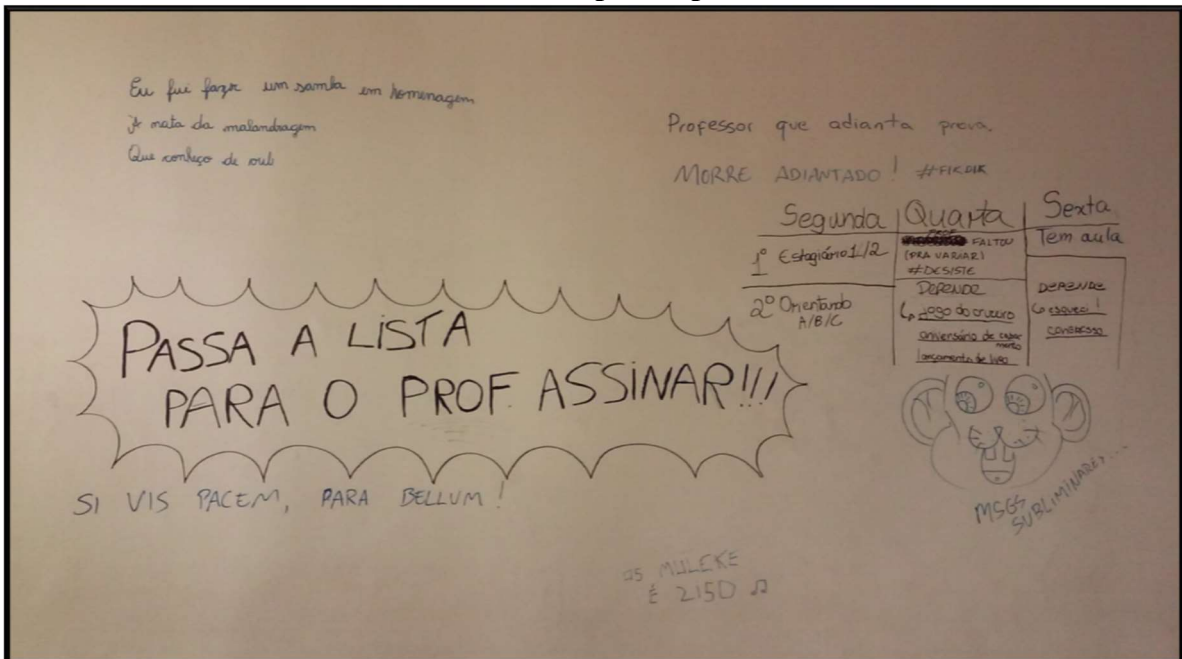 Eu fui fazer um samba em homenagem
À nata da malandragem
Que conheço de out
Professor que adianta prova,
MORRE ADIANTADO! #FIKDIK
Segunda Quarta Sexta
1º Estagiário 1/2
PROF FALTOU
(PRA VARIAR)
#DESISTE
Tem aula
2º Orientando
A/B/C
DEPENDE
↳ jogo do cruzeiro
aniversário de casa
mento
lançamento de livro
DEPENDE
↳ esqueci!
CONGRESSO
PASSA A LISTA
PARA O PROF. ASSINAR!!!
SI VIS PACEM, PARA BELLUM!
MSGS
SUBLIMINARES...
OS MULEKE
É 2150 ♫